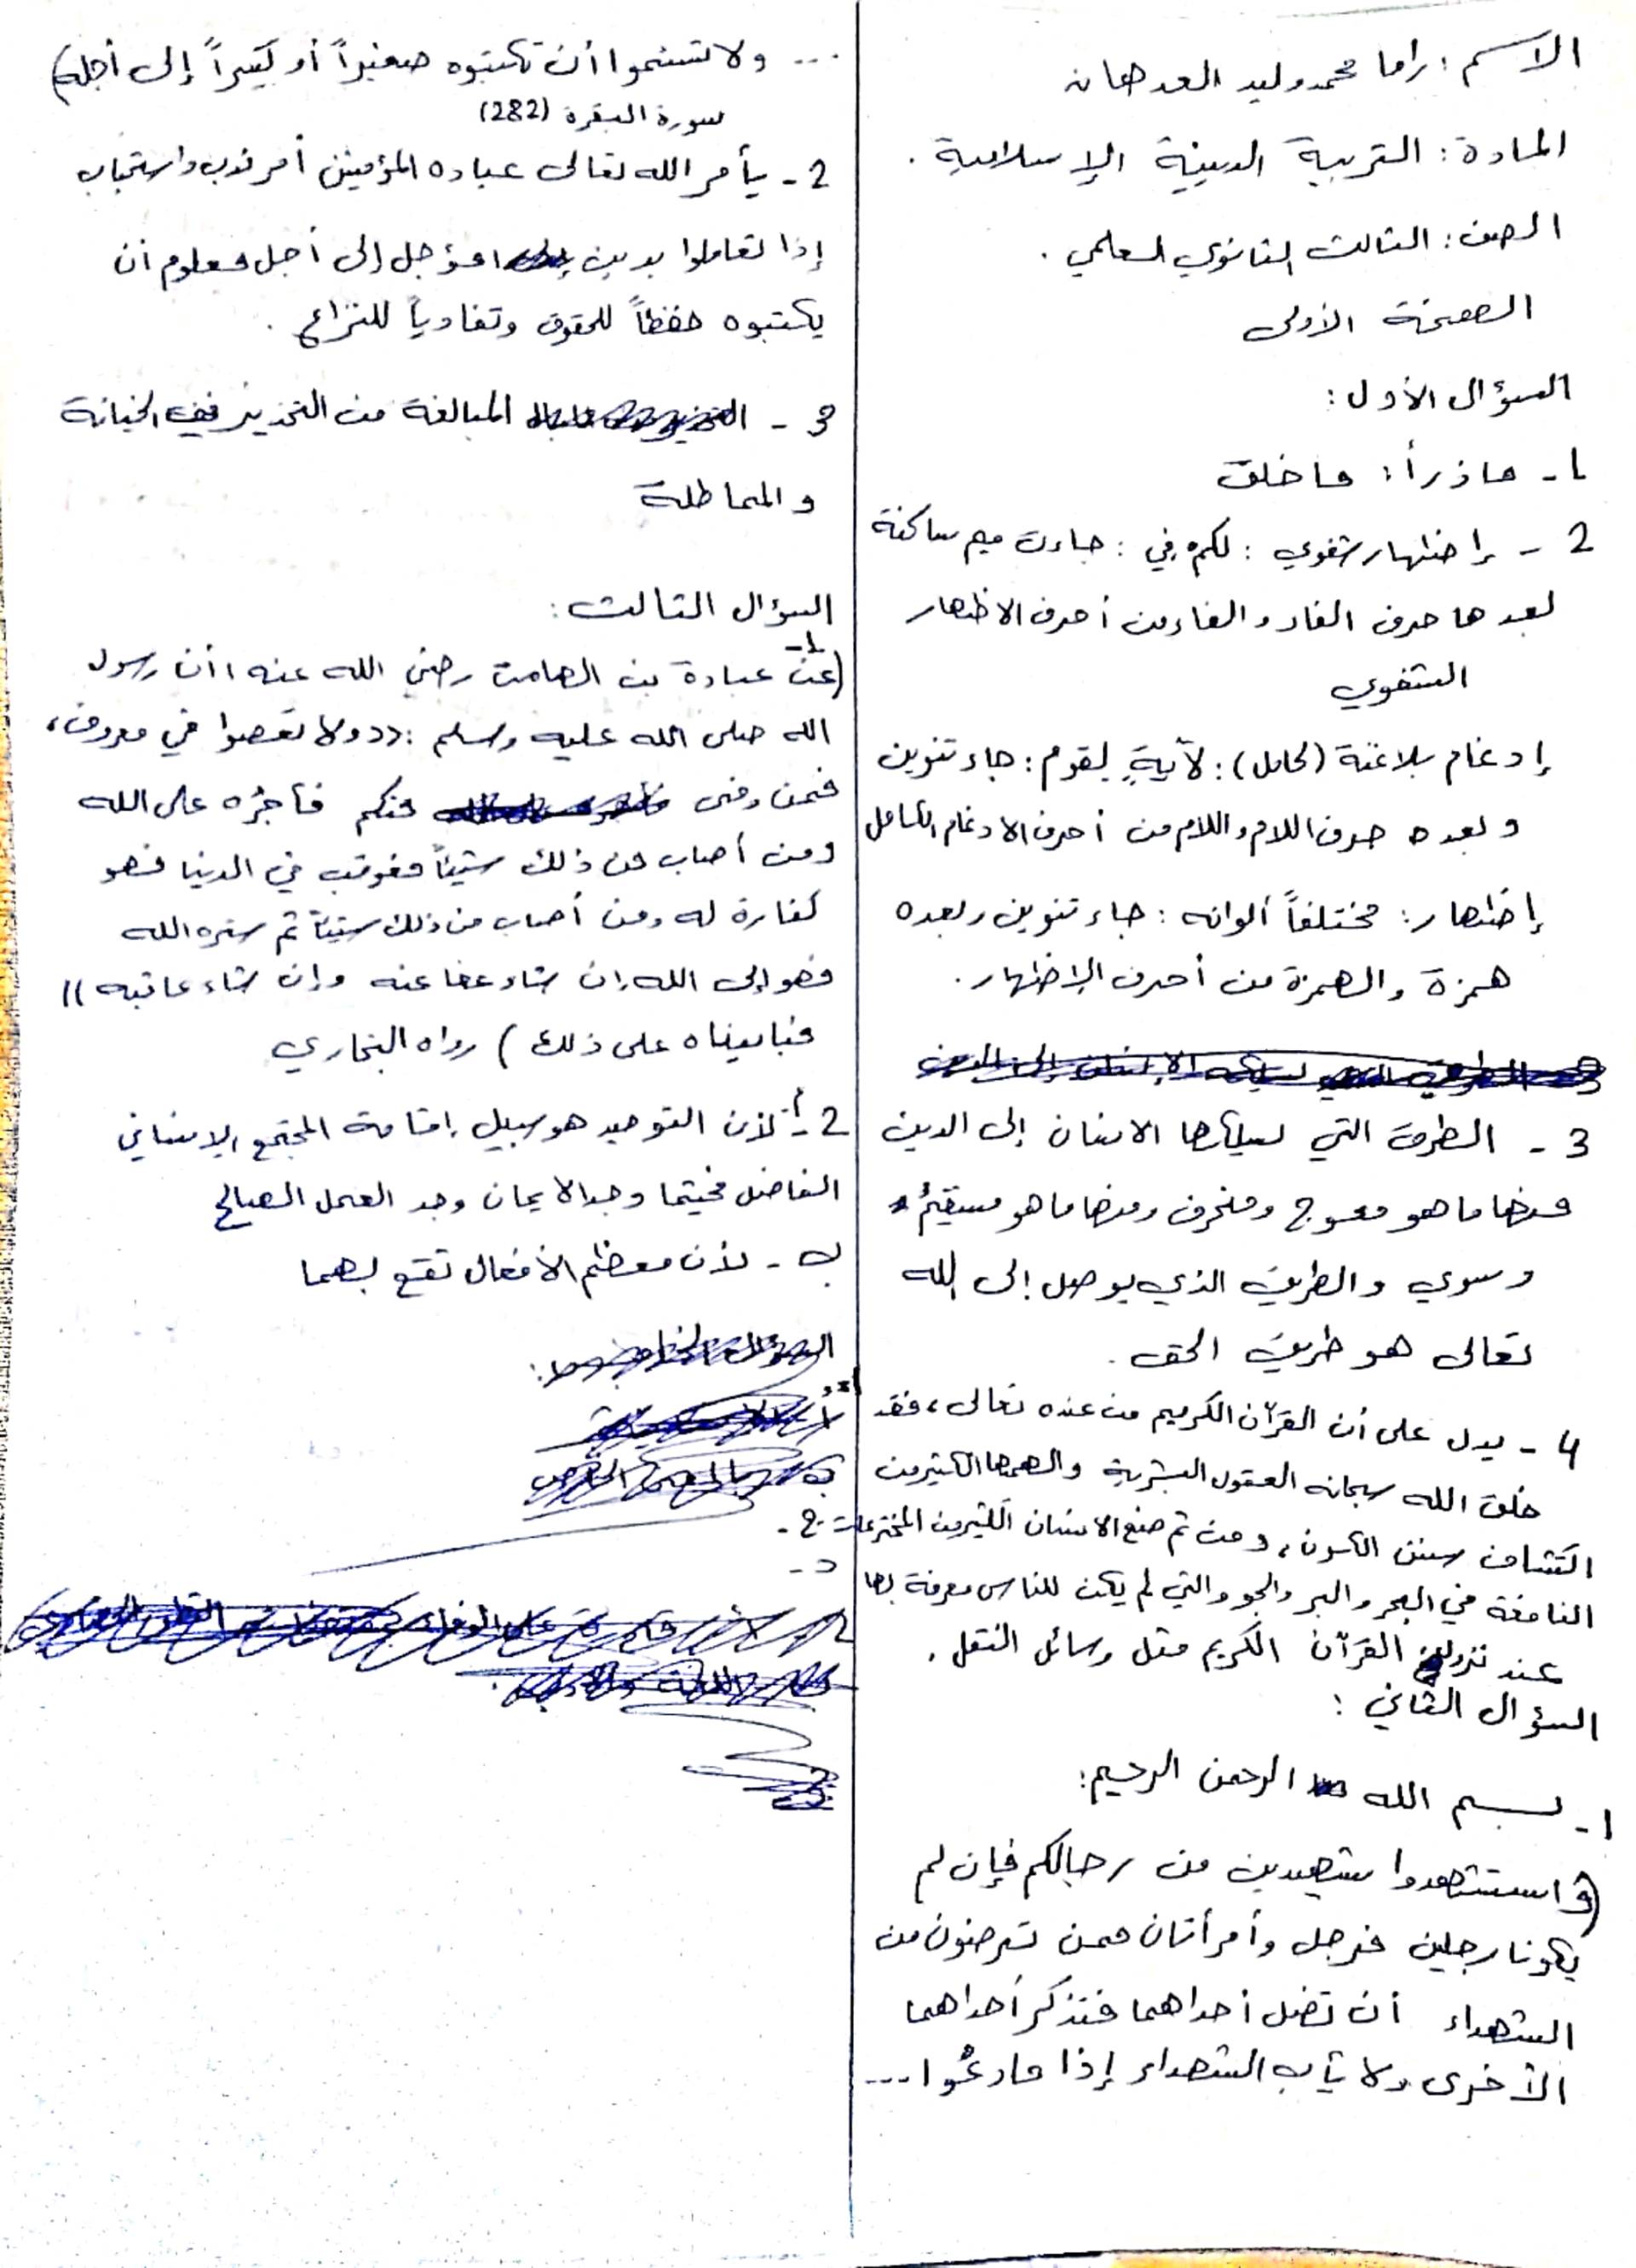 الاسم: راما محمد وليد العدهان
المادة: التربية الدينية الإسلامية.
الصف: الثالث الثانوي العلمي.
الصفحة الأولى
السؤال الأول:
1- ما ذرأ: ما خلق
2- إظهار شفوي: لكم في: جاءت ميم ساكنة
بعدها حرف الفاء والفاء من أحرف الاظهار
الشفوي
إدغام بلا غنة (كامل): لآيةٍ لقوم: جاء تنوين
وبعده حرف اللام واللام من أحرف الادغام الكامل
إظهار: مختلفاً ألوانه: جاء تنوين وبعده
همزة والهمزة من أحرف الإظهار.
3- الطرق التي يسلكها الانسان إلى الدين
منها ما هو معوج ومنحرف ومنها ما هو مستقيمٌ
وسوي والطريق الذي يوصل إلى الله
تعالى هو طريق الحق.
4- يدل على أن القرآن الكريم من عنده تعالى، فقد
خلق الله سبحانه العقول البشرية وألهمها الكثير من
اكتشاف سنن الكون، ومن ثم صنع الانسان الكثير من المخترعات
النافعة في البحر والبر والجو والتي لم يكن للناس معرفة بها
عند نزول القرآن الكريم مثل وسائل النقل.
السؤال الثاني:
1- بسم الله الرحمن الرحيم:
(واستشهدوا شهيدين من رجالكم فإن لم
يكونا رجلين فرجل وأمرأتان ممن ترضون من
الشهداء أن تضل أحداهما فتذكر أحداهما
الأخرى ولا يأب الشهداء إذا ما دعُوا...
... ولا تسئموا أن تكتبوه صغيراً أو كبيراً إلى أجله)
سورة البقرة (282)
2- يأمر الله تعالى عباده المؤمنين أمر ندب واستحباب
إذا تعاملوا بدين مؤجل إلى أجل معلوم أن
يكتبوه حفظاً للحقوق وتفادياً للنزاع.
3- المبالغة من التحذير في الخيانة
والمماطلة
السؤال الثالث:
1-
(عن عبادة بن الصامت رضي الله عنه، أن رسول
الله صلى الله عليه وسلم: ((ولا تعصوا في معروف،
فمن وفى منكم فأجرُه على الله
ومن أصاب من ذلك شيئاً فعوقب في الدنيا فهو
كفارة له ومن أصاب من ذلك شيئاً ثم ستره الله
فهو إلى الله إن شاء عفا عنه وإن شاء عاقبه))
فبايعناه على ذلك) رواه البخاري
2- أ- لأن التوحيد هو سبيل إقامة المجتمع الإنساني
الفاضل فحيثما وجد الايمان وجد العمل الصالح
ب- لأن معظم الأفعال تقع بهما